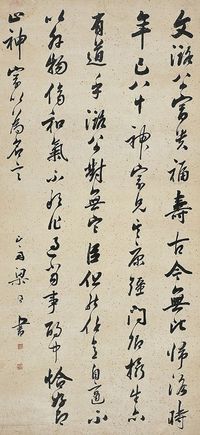 文潞公富貴福壽古今無比歸洛時
年已八十神宗見其康強問卿攝生亦
有道乎潞公對無它臣但能任意自適不
以外物傷和氣不敢作過當事酌中恰好即
止神宗以為名言
山舟梁同書